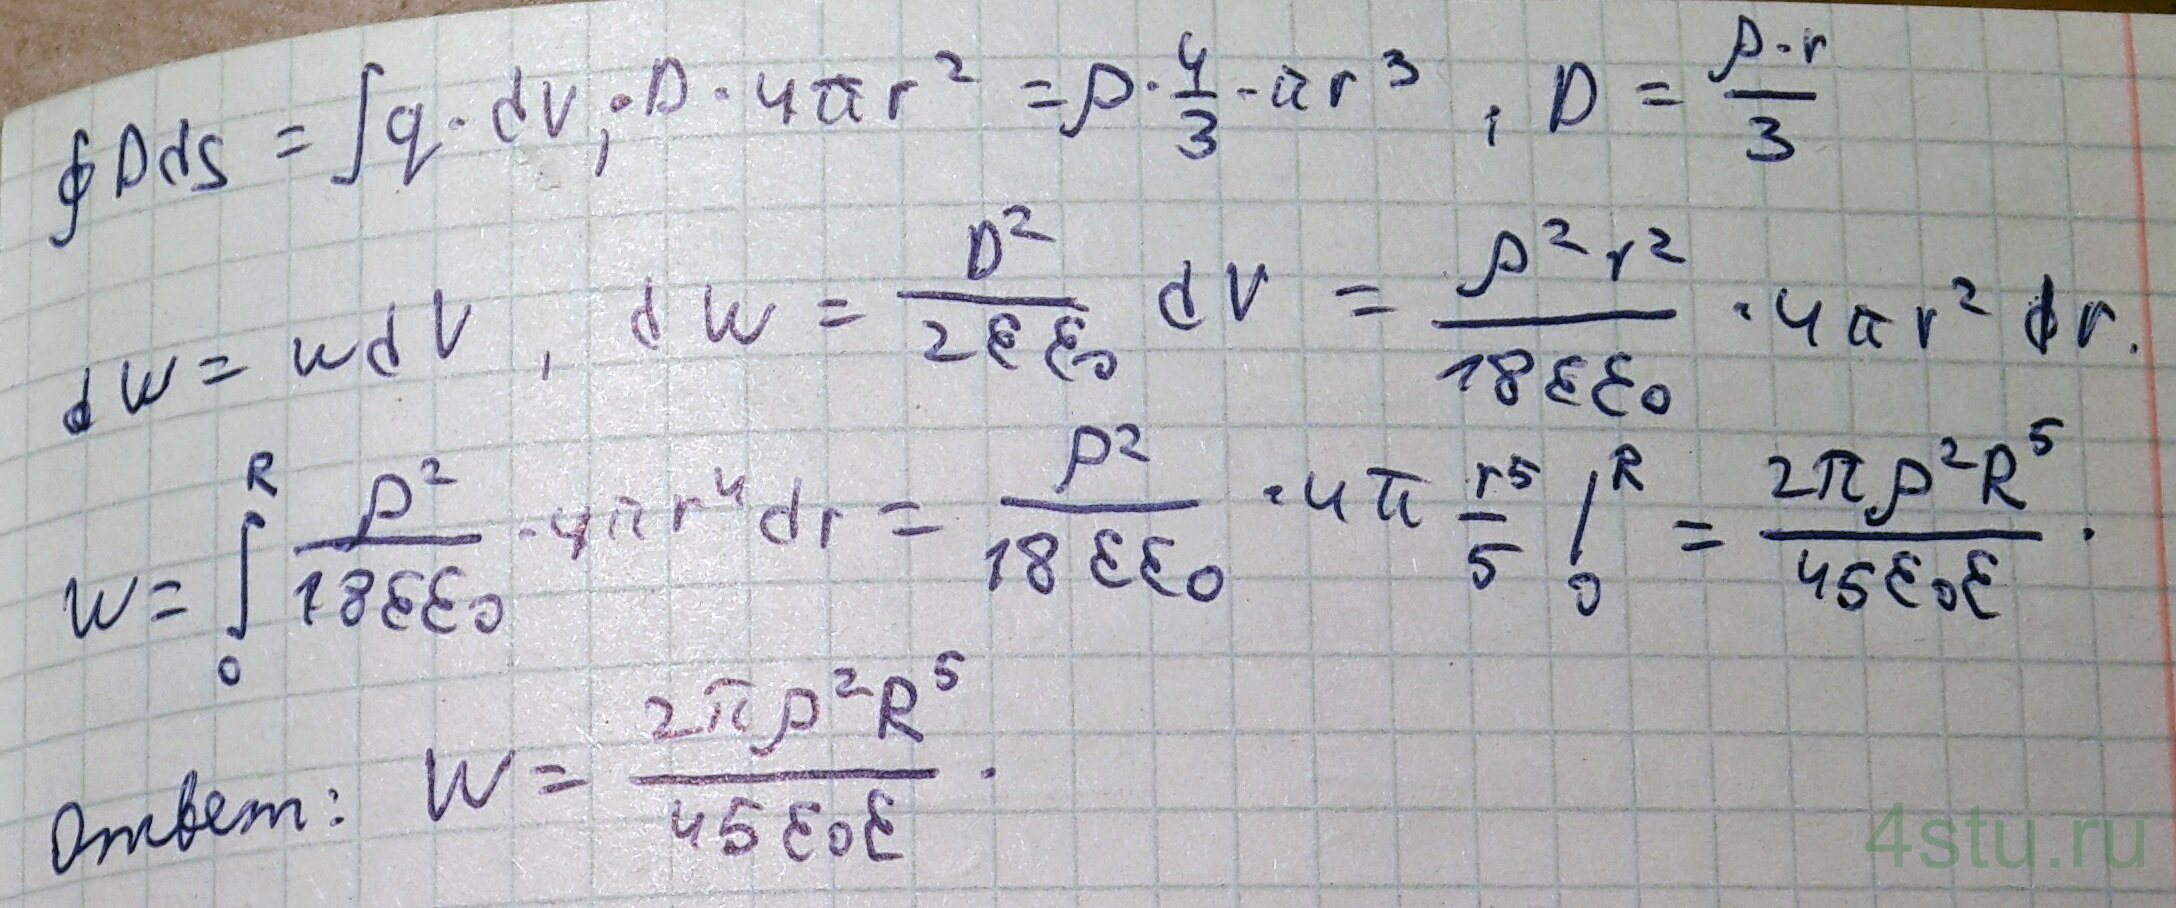 ∮Dds = ∫q·dV; ·D·4πr² = ρ·4/3·πr³, D = ρ·r/3
dW = wdV, dW = D²/2εε₀ dV = ρ²r²/18εε₀ · 4πr²dr.
W = ∫₀ᴿ ρ²/18εε₀ · 4πr⁴dr = ρ²/18εε₀ · 4π r⁵/5 |₀ᴿ = 2πρ²R⁵/45ε₀ε.
Ответ: W = 2πρ²R⁵/45ε₀ε.
4stu.ru